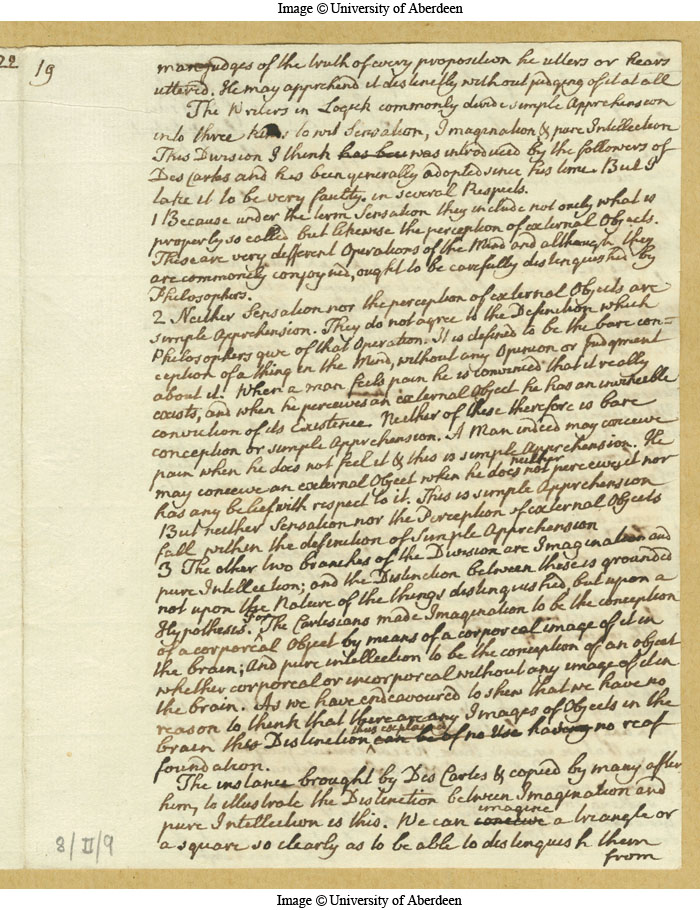 Image © University of Aberdeen
22
19
man judges of the truth of every proposition he utters or hears
uttered. He may apprehend it distinctly without judging of it at all
The Writers in Logick commonly divide simple Apprehension
into three kinds to wit Sensation, Imagination & pure Intellection
This Division I think has been was introduced by the followers of
Des Cartes and has been generally adopted since his time. But I
take it to be very faulty in several Respects.
1 Because under the term Sensation they include not onely what is
properly so called but likewise the perception of external Objects.
These are very different Operations of the Mind and although they
are commonly conjoyned, ought to be carefully distinguished by
Philosophers.
2 Neither Sensation nor the perception of external Objects are
simple Apprehension. They do not agree to the Definition which
Philosophers give of that Operation. It is defined to be the bare con=
ception of a thing in the Mind, without any Opinion or Judgment
about it. When a man feels pain he is convinced that it really
exists, and when he perceives an external Object he has an invincible
conviction of its Existence. Neither of these therefore is bare
conception or simple Apprehension. A Man indeed may conceive
pain when he does not feel it & this is simple Apprehension. He
may conceive an external Object when he does not neither perceives it nor
has any belief with respect to it. This is simple Apprehension
But neither Sensation nor the Perception of external Objects
fall within the definition of Simple Apprehension
3 The other two branches of the Division are Imagination and
pure Intellection; and the Distinction between these is grounded
not upon the Nature of the things distinguished, but upon a
Hypothesis. For The Cartesians made Imagination to be the conception
of a corporeal Object by means of a corporeal image of it in
the brain; And pure intellection to be the conception of an object
whether corporeal or incorporeal without any image of it in
the brain. As we have endeavoured to shew that we have no
reason to think that there are any Images of Objects in the
brain this Distinction thus explained can be of no Use having no real
foundation.
The instance brought by Des Cartes & copied by many after
him, to illustrate the Distinction between Imagination and
pure Intellection is this. We can conceive imagine a triangle or
a square so clearly as to be able to distinguish them
from
8/II/9
Image © University of Aberdeen